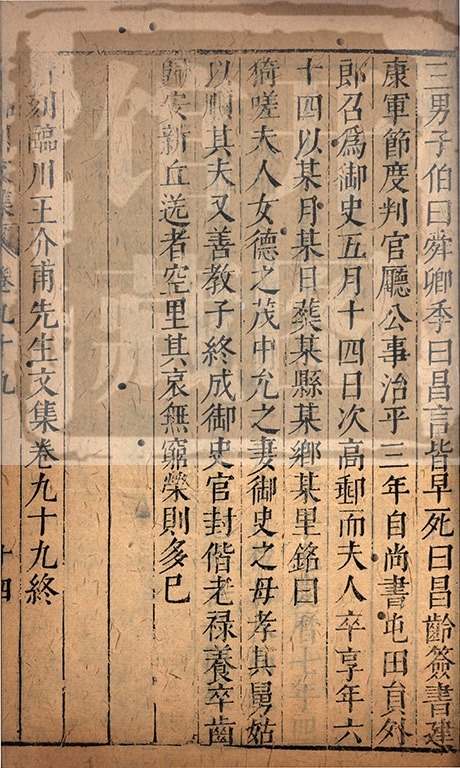 三男子伯曰舜卿季曰昌言皆早死曰昌齡簽書建
康軍節度判官廳公事治平三年自尚書屯田貟外
郎召爲御史五月十四日次高郵而夫人卒享年六
十四以某月某日葬某縣某鄉某里銘曰
猗嗟夫人女德之茂中允之妻御史之母孝其舅姑
以順其夫又善教子終成御史官封偕老祿養卒齒
歸安新丘送者空里其哀無窮榮則多已
新刻臨川王介甫先生文集卷九十九終
卷九十九
十四